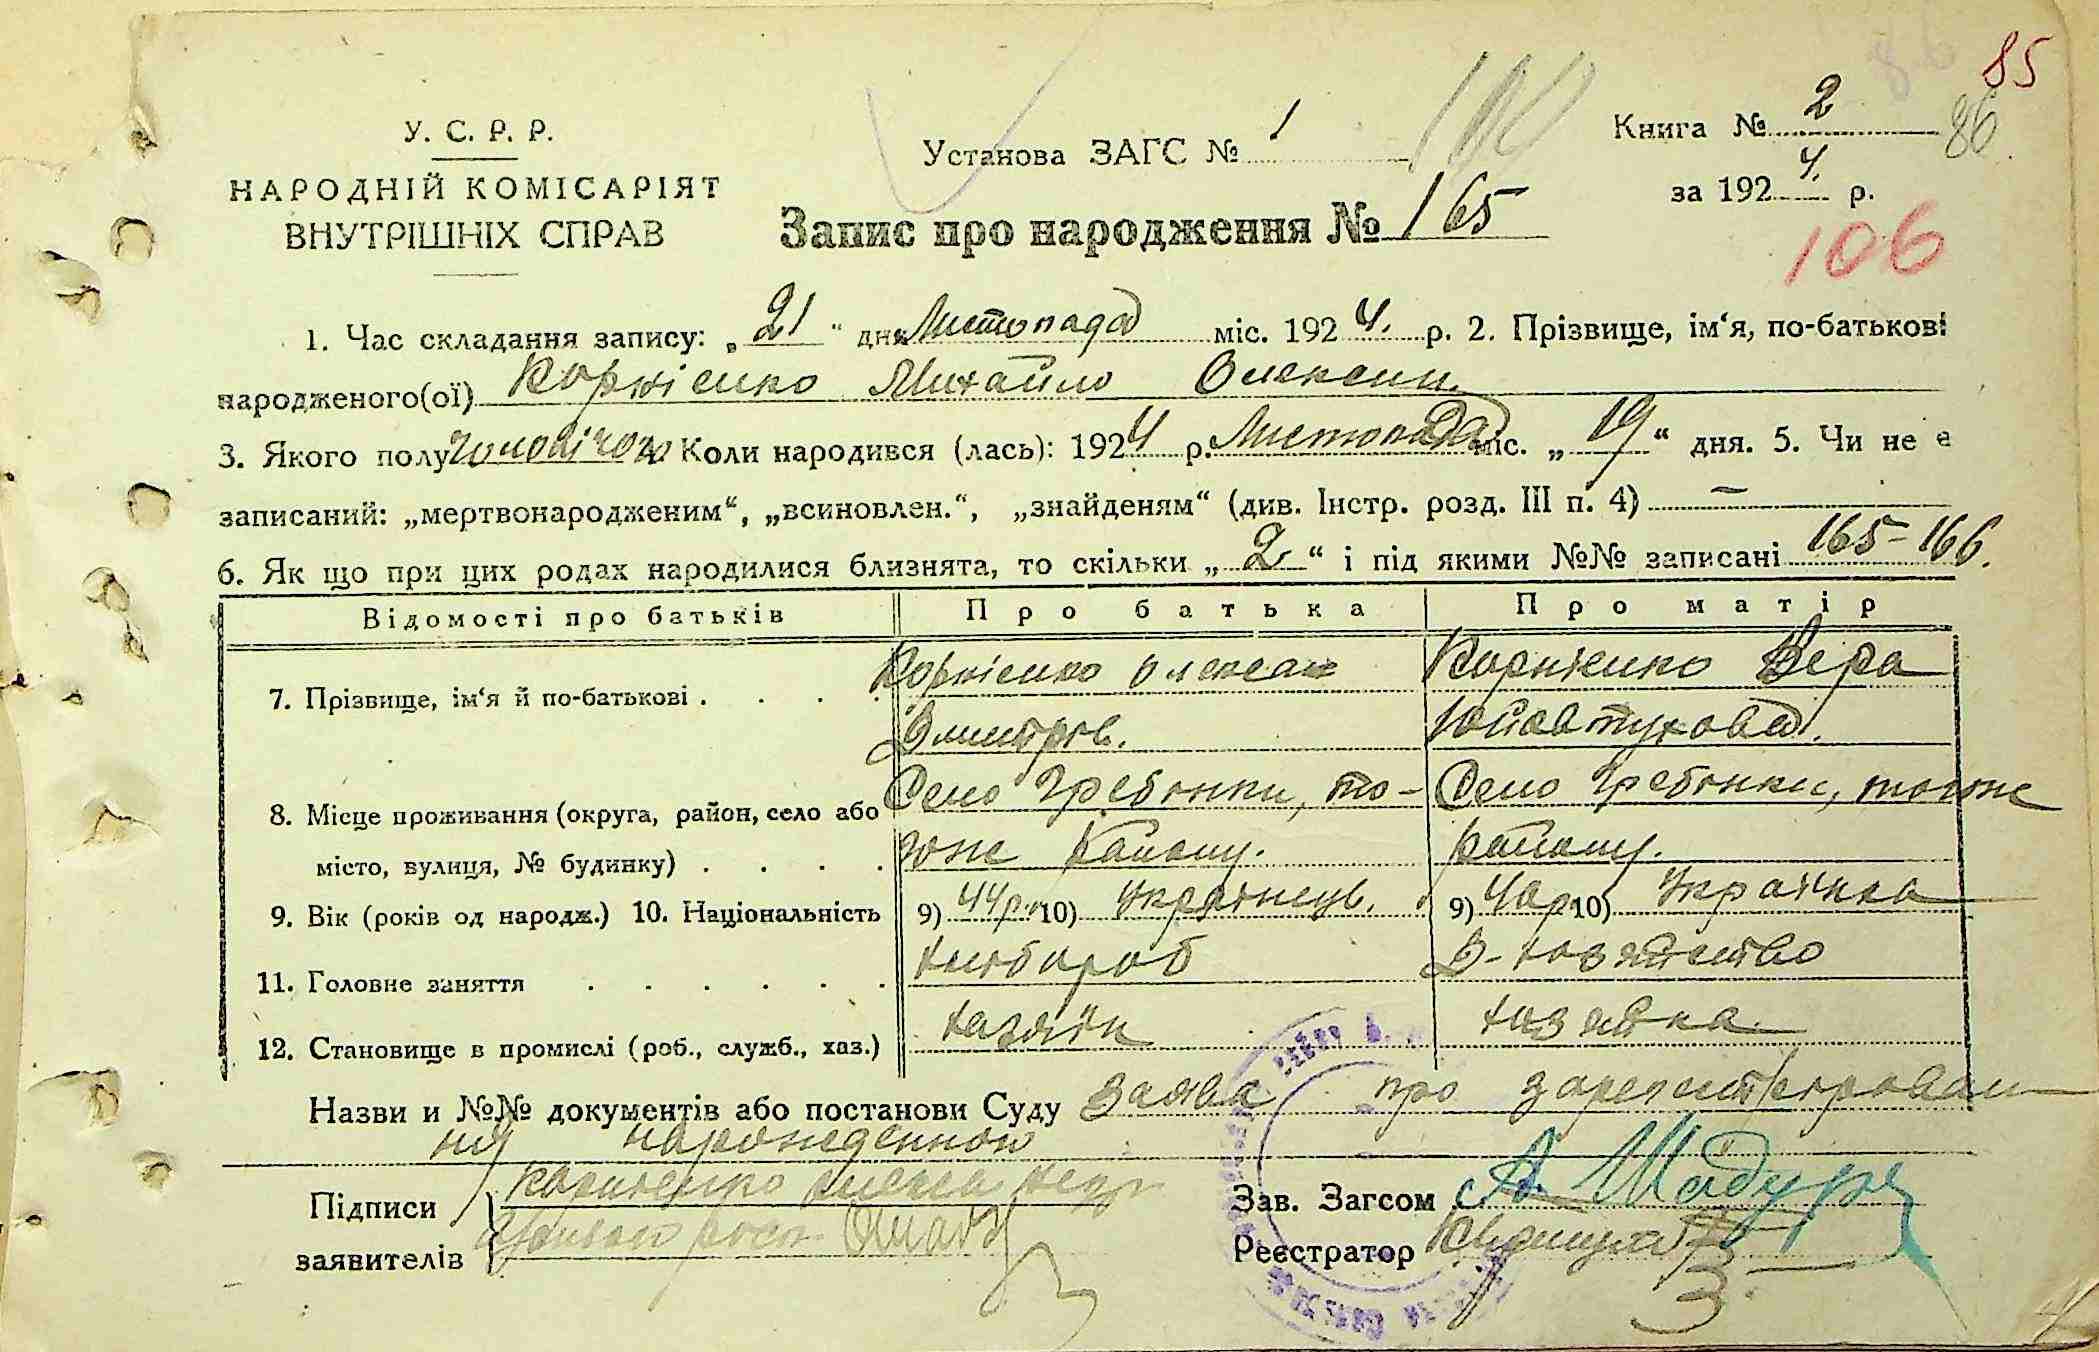 85
86
У. С. Р. Р.
НАРОДНІЙ КОМІСАРІЯТ
ВНУТРІШНІХ СПРАВ
Установа ЗАГС № 1
Книга № 2
за 1924. р.
Запис про народження № 165
106
1. Час складання запису: „21" дня Листопада міс. 1924. р. 2. Прізвище, ім'я, по-батькові
народженого(ої) Корнієнко Михайло Олексии.
3. Якого полу чоловічого 4. Коли народився (лась): 1924 р. Листопада міс. „19" дня. 5. Чи не є
записаний: „мертвонародженим", „всиновлен.", „знайденям" (див. Інстр. розд. III п. 4) —
6. Як що при цих родах народилися близнята, то скільки „2" і під якими №№ записані 165-166.
Відомості про батьків Про батька Про матір
7. Прізвище, ім'я й по-батькові . . . . Корнієнко Олексан Корнієнко Вера
Дмитров. Юйовтухова.
8. Місце проживання (округа, район, село або Село Гребінки, то- Село Гребінки, тогоже
місто, вулиця, № будинку) . . . . гоже району. району.
9. Вік (років од народж.) 10. Національність 9) 44р. 10) Українець. 9) 40р. 10) Українка
11. Головне заняття . . . . . . Хлібороб Д-хозяйство
12. Становище в промислі (роб., служб., хаз.) хазяїн хазяйка
Назви и №№ документів або постанови Суду Заява про зарегистрирован
ня нарожденною
Підписи Корниенко
заявителів
Зав. Загсом
Реєстратор